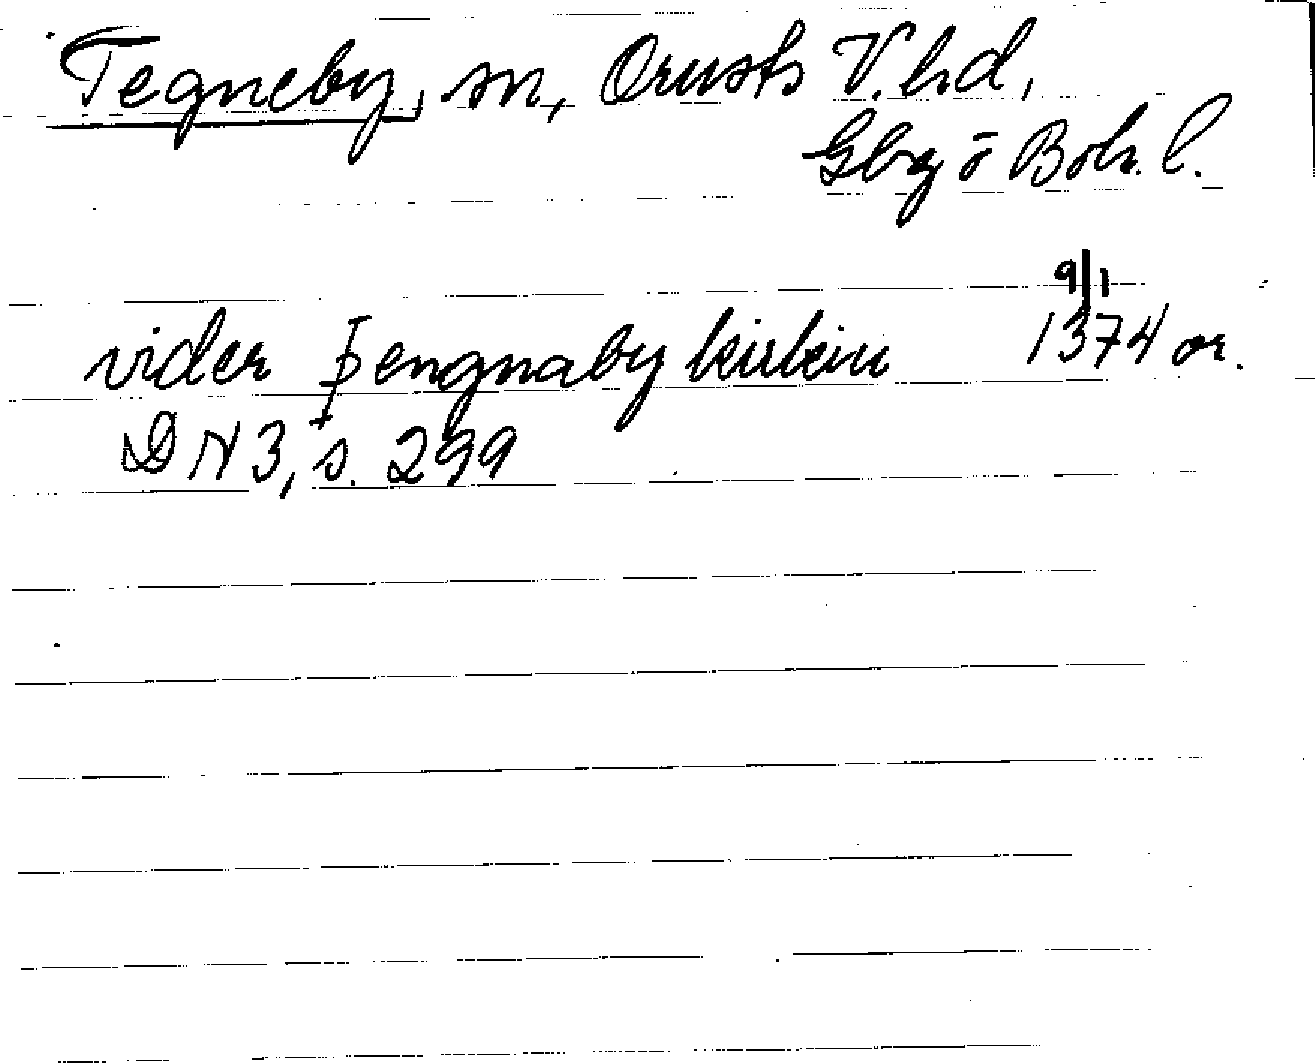 Tegneby, sn, Orusts V. hd,
Gbg o Boh. l.
9/1
vider Þengnaby kirkiu 1374 or.
DN 3, s. 299